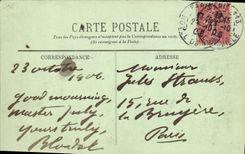 CARTE POSTALE
Tous les Pays étrangers n'acceptent pas la Correspondance au verso
(Se renseigner à la Poste)
CORRESPONDANCE
ADRESSE
23 octobre
1906.
Good mourning,
master July,
Yours truly,
Blodel
Monsieur
Jules Strauss,
15, rue de la
Bruyère,
Paris